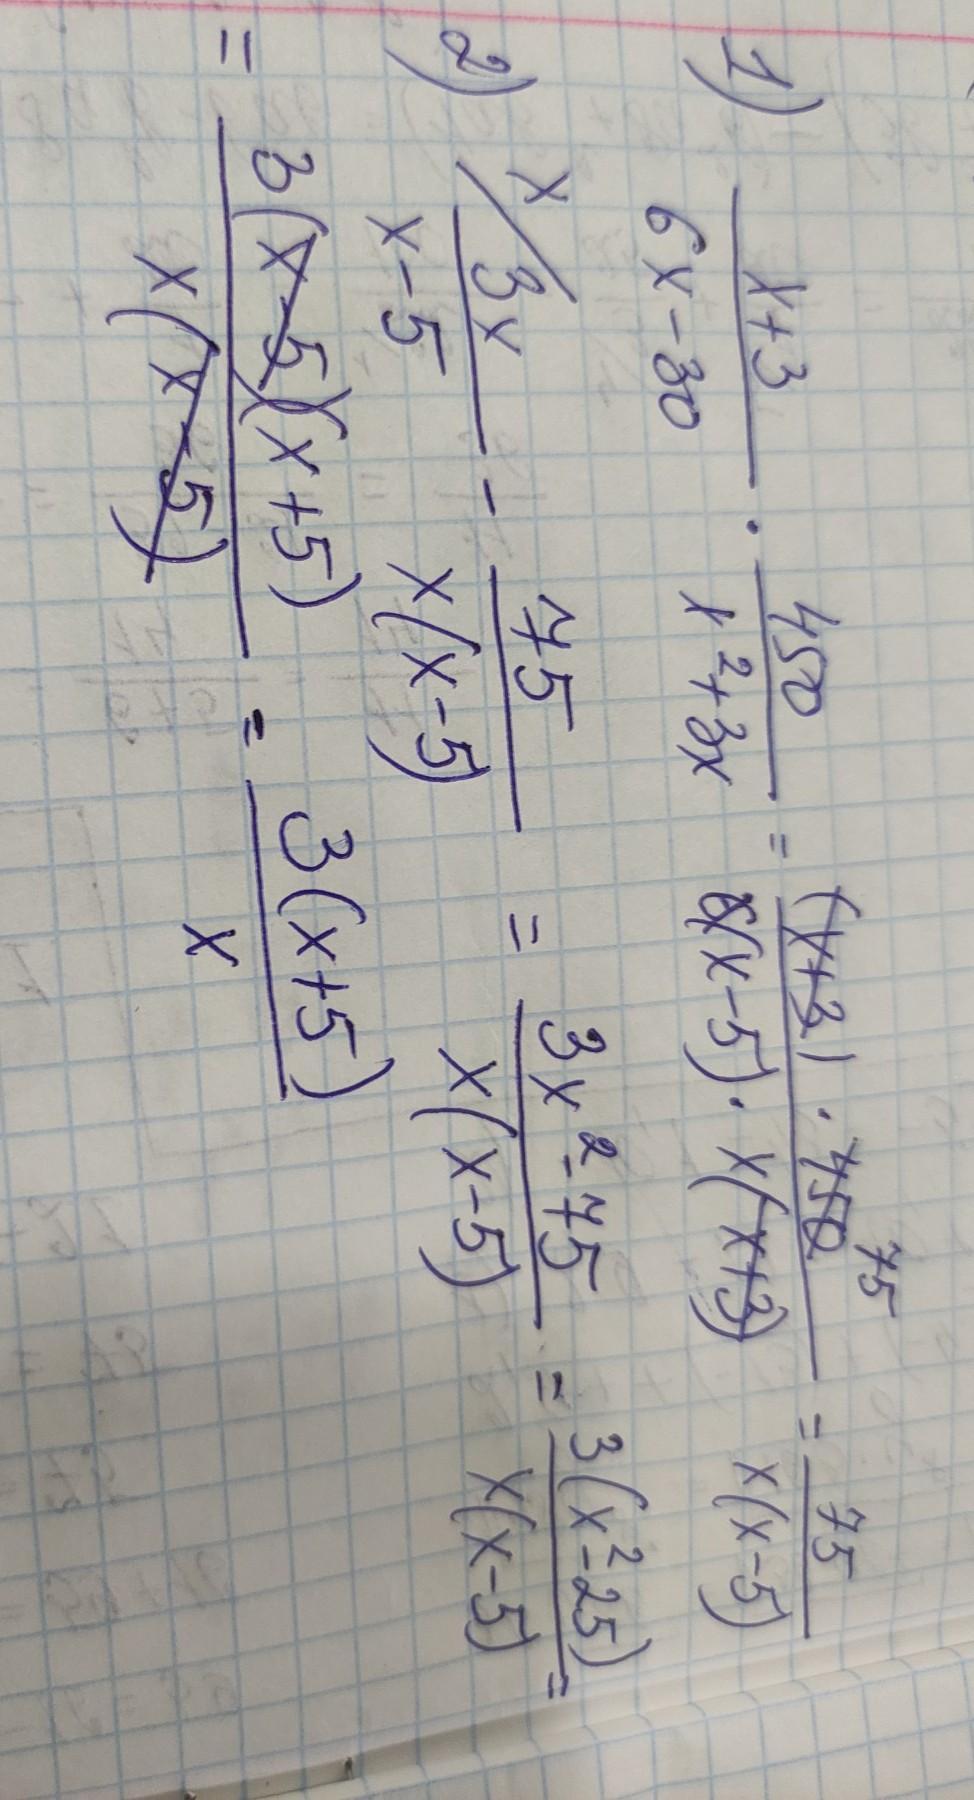 1) (x+3)/(6x-30) · 450/(x²+3x) = ((x+3) · 450)/(6(x-5) · x(x+3)) 75 = 75/(x(x-5))
2) x/ 3x/(x-5) - 75/(x(x-5)) = (3x²-75)/(x(x-5)) = 3(x²-25)/(x(x-5)) =
= 3(x-5)(x+5)/(x(x-5)) = 3(x+5)/x